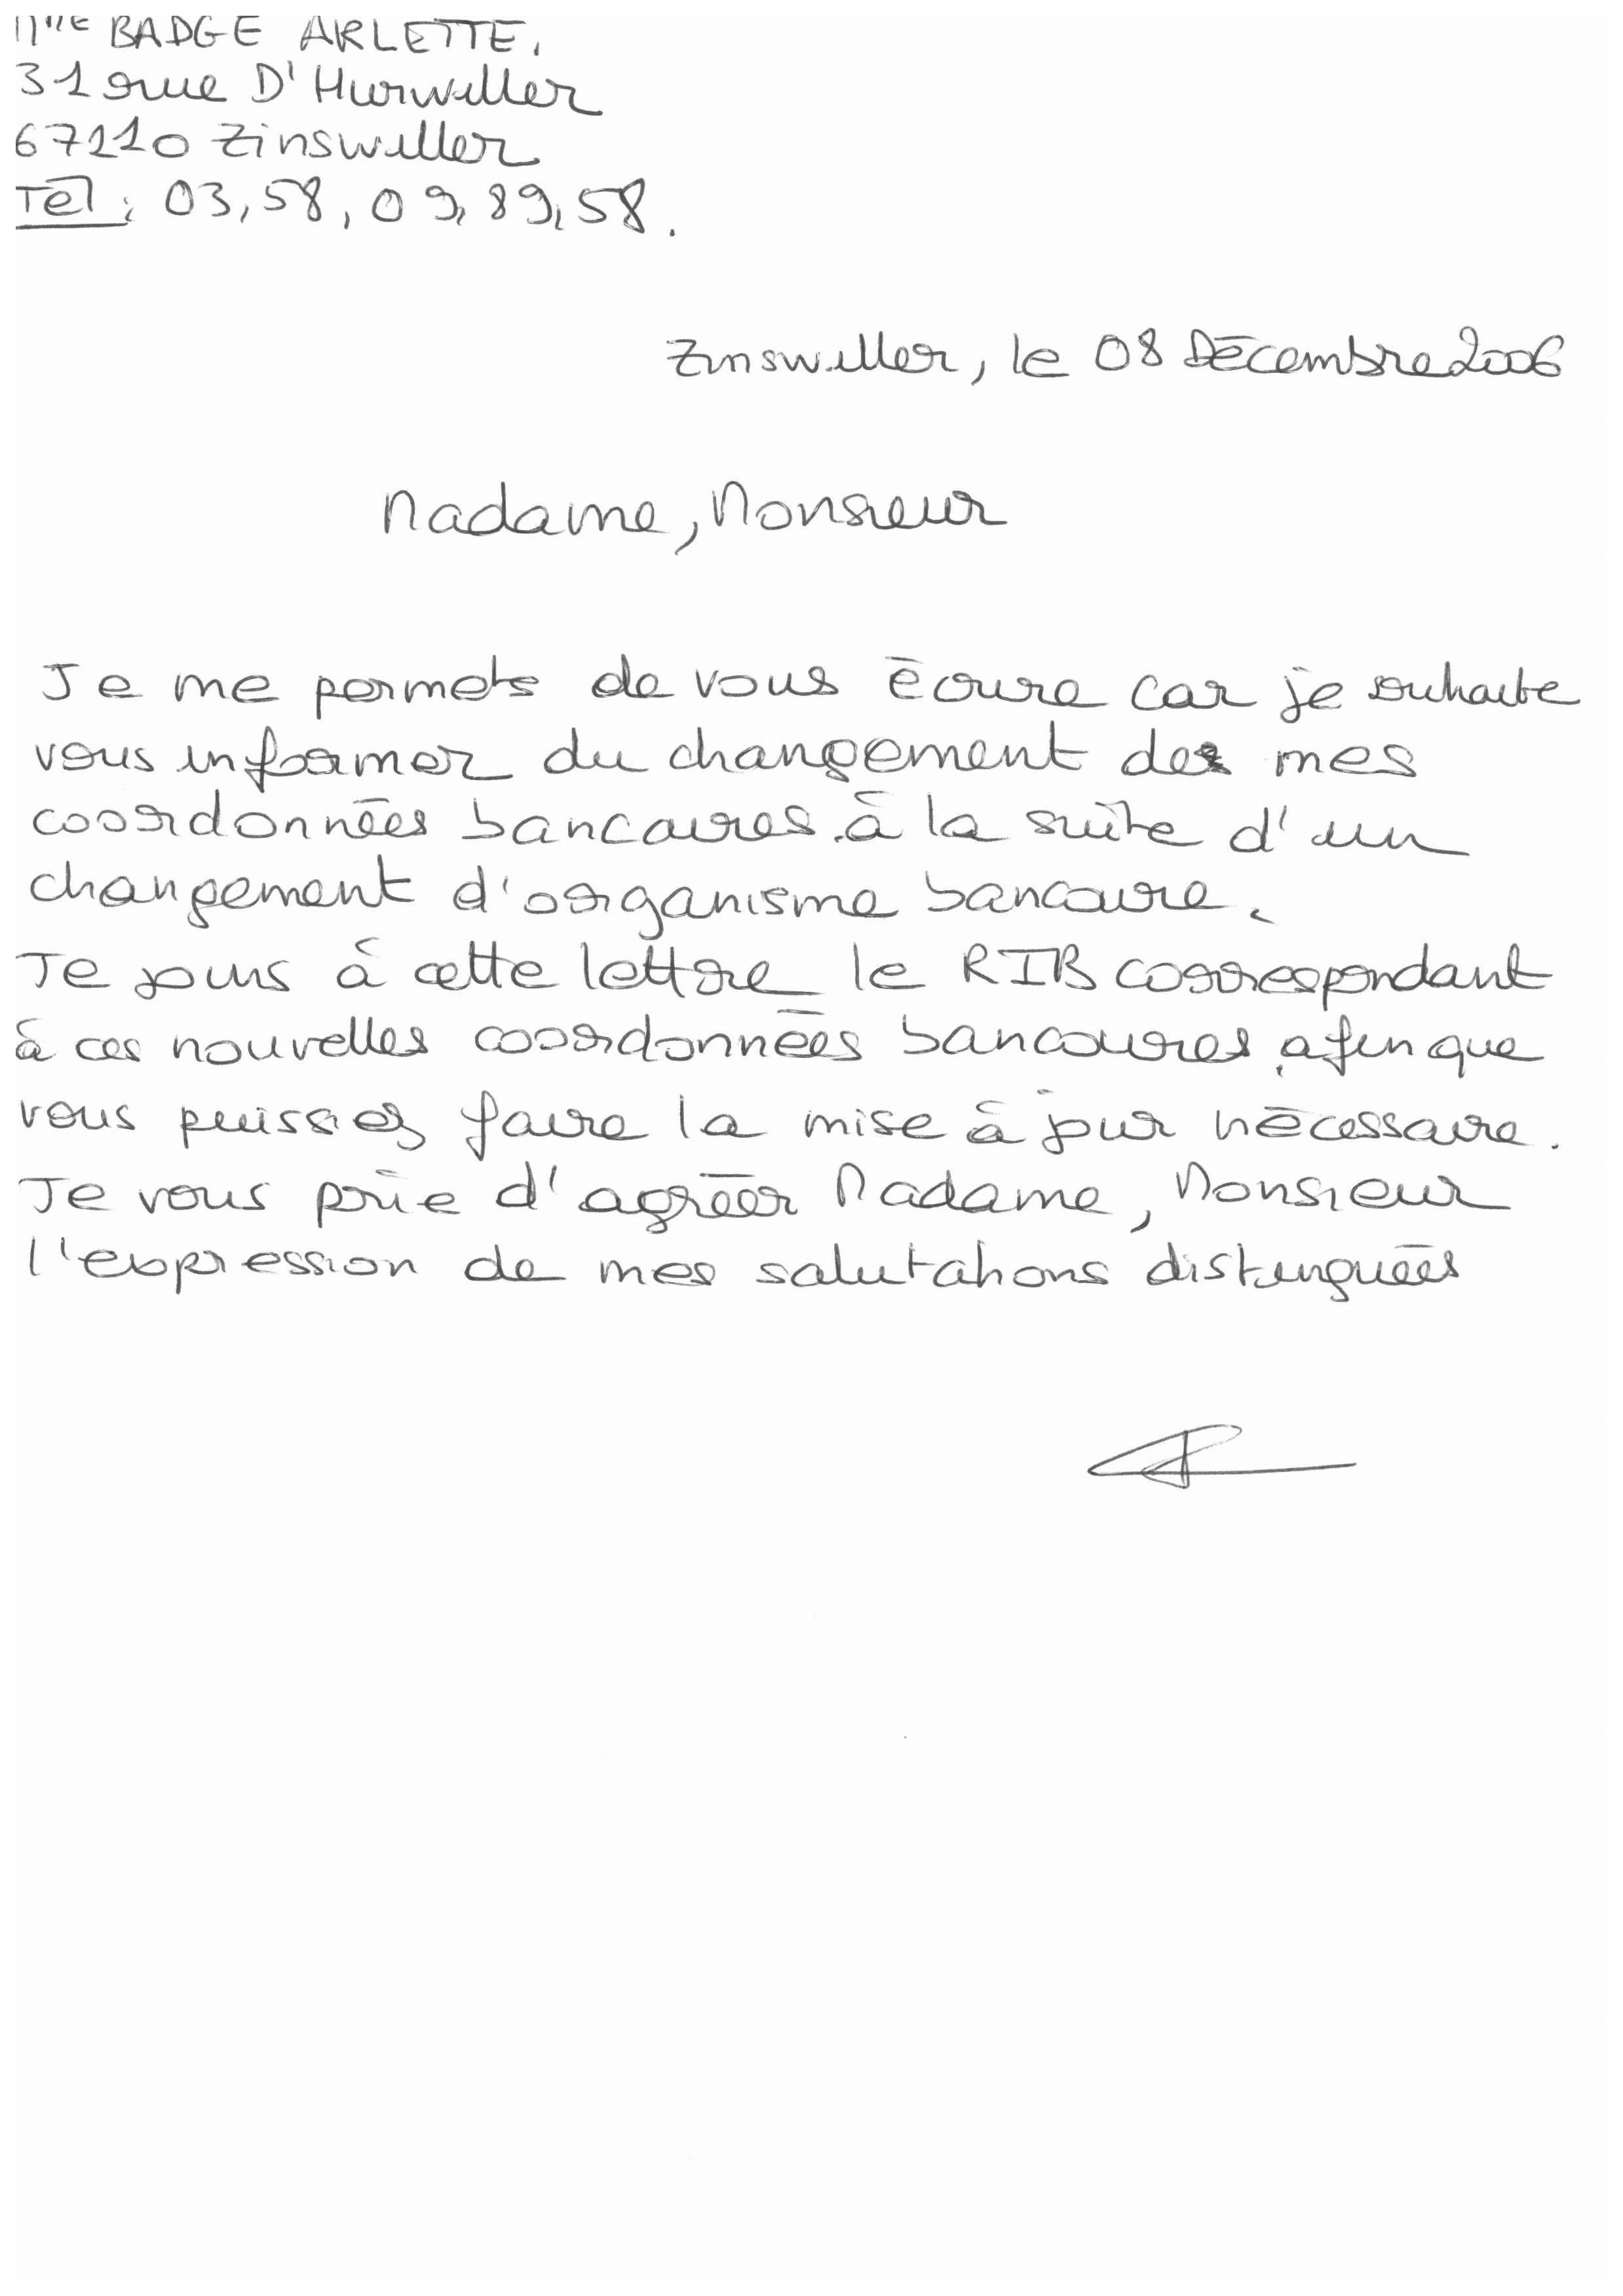 Mme BADGE ARLETTE.
31 rue D'Hurwiller
67110 Zinswiller
Tél : 03,58,09,89,58.
Zinswiller, le 08 Décembre 2006
Madame, Monsieur
Je me permets de vous écrire car je souhaite
vous informer du changement de mes
coordonnées bancaires, à la suite d'un
changement d'organisme bancaire.
Je joins à cette lettre le RIB correspondant
à ces nouvelles coordonnées bancaires, afin que
vous puissiez faire la mise à jour nécessaire.
Je vous prie d'agréer Madame, Monsieur
l'expression de mes salutations distinguées